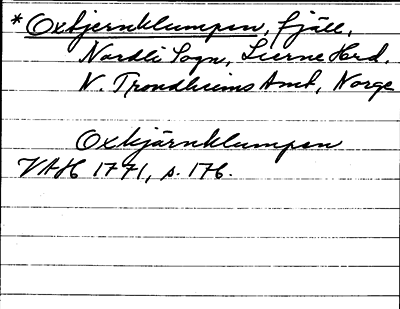 * Oxtjernklumpen, fjäll,
Nordli Sogn, Lierne Hrd.
N. Trondheims Amt, Norge
Oxkjärnklumpen
VAH 1771, s. 176.